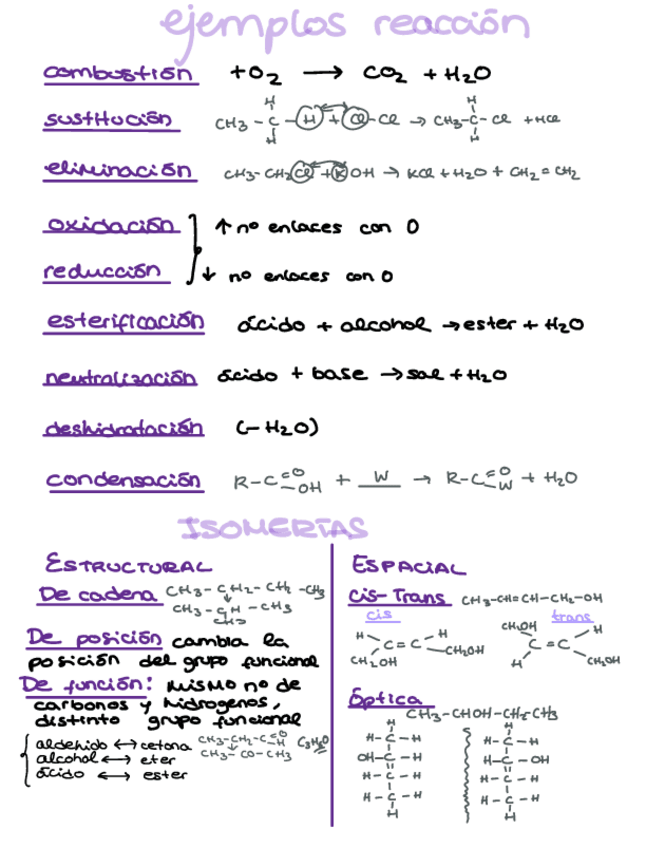 ejemplos reacción
combustión +O₂ → CO₂ + H₂O
sustitución CH₃ - C - H + Cl-Cl → CH₃-C- Cl + HCl
H H
H H
eliminación CH₃-CH₂Cl + KOH → KCl + H₂O + CH₂=CH₂
oxidación ↑ nº enlaces con O
reducción ↓ nº enlaces con O
esterificación ácido + alcohol → ester + H₂O
neutralización ácido + base → sal + H₂O
deshidratación (-H₂O)
condensación R-C=O -OH + W → R-C=O -W + H₂O
ISOMERÍAS
ESTRUCTURAL
De cadena CH₃-CH₂-CH₂-CH₃
CH₃-CH-CH₃
CH₃
De posición cambia la
posición del grupo funcional
De función: mismo nº de
carbonos y hidrógenos,
distinto grupo funcional
aldehido ↔ cetona CH₃-CH₂-C=O -H C₃H₆O
alcohol ↔ eter CH₃-CO-CH₃
ácido ↔ ester
ESPACIAL
cis-Trans CH₃-CH=CH-CH₂-OH
cis trans
H C=C H
CH₂OH CH₂OH
CH₂OH C=C H
H CH₂OH
Óptica
CH₃-CHOH-CH₂-CH₃
H H
H-C-H H-C-H
OH-C-H H-C-OH
H-C-H H-C-H
H-C-H H-C-H
H H